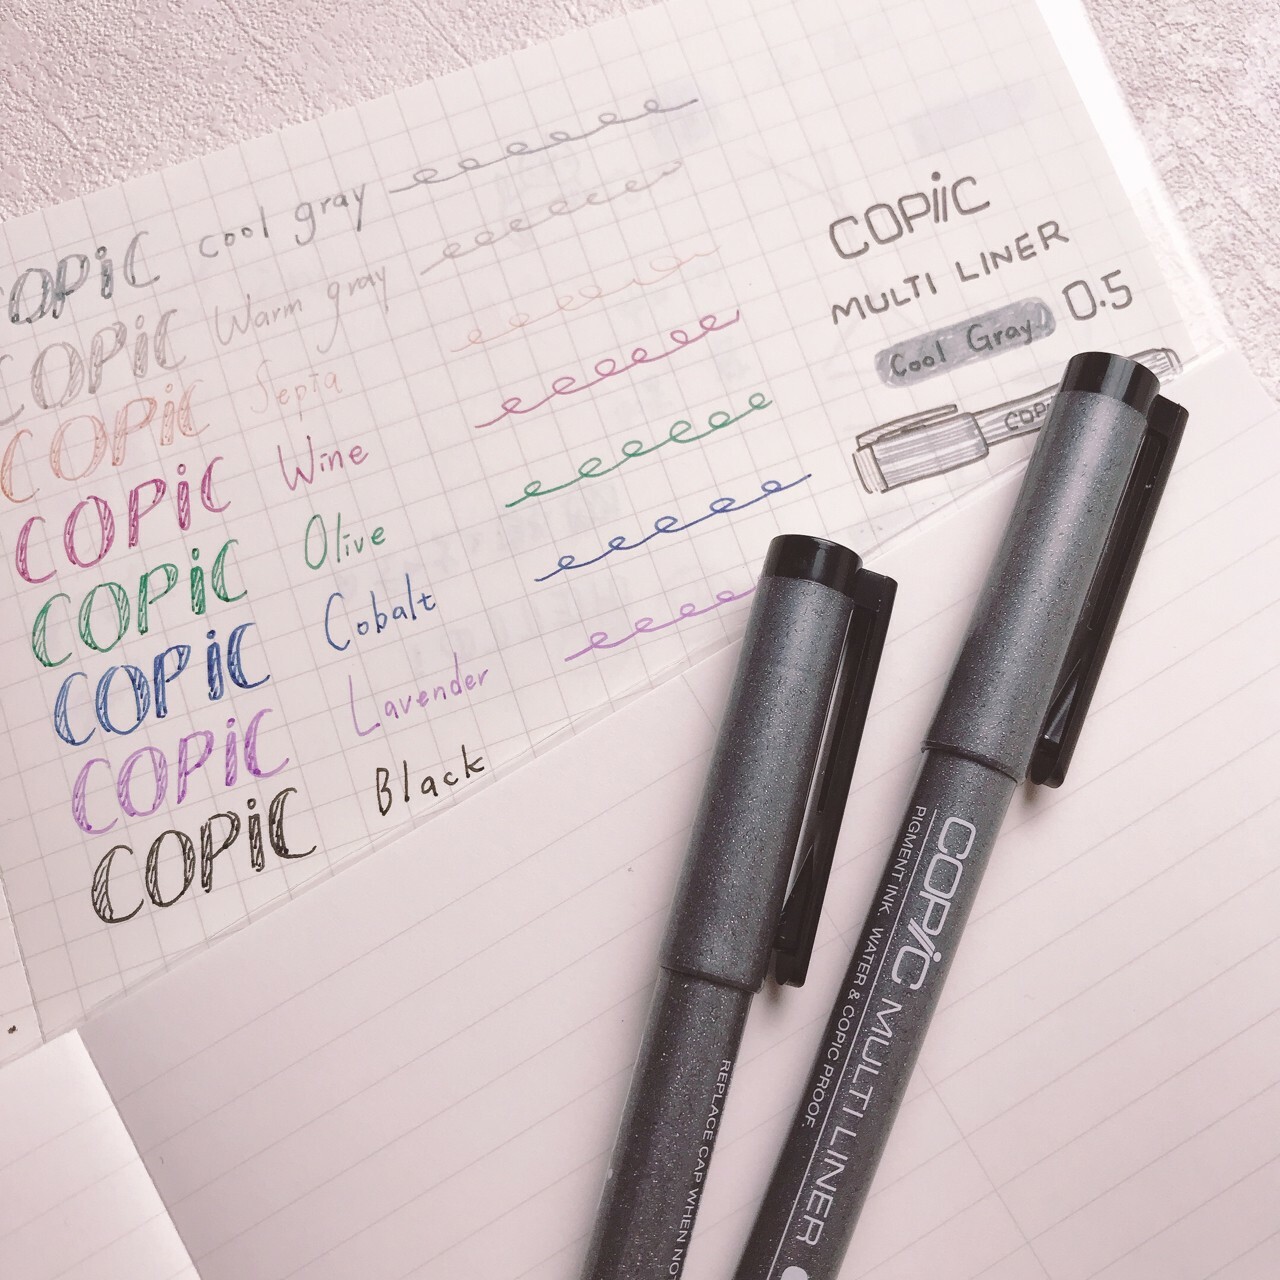 COPiC cool gray
COPiC Warm gray
COPiC Sepia
COPiC Wine
COPiC Olive
COPiC Cobalt
COPiC Lavender
COPiC Black
COPiC
MULTI LINER
Cool Gray 0.5
COPi
COPiC MULTI LINER
PIGMENT INK. WATER & COPIC PROOF.
REPLACE CAP WHEN NOT